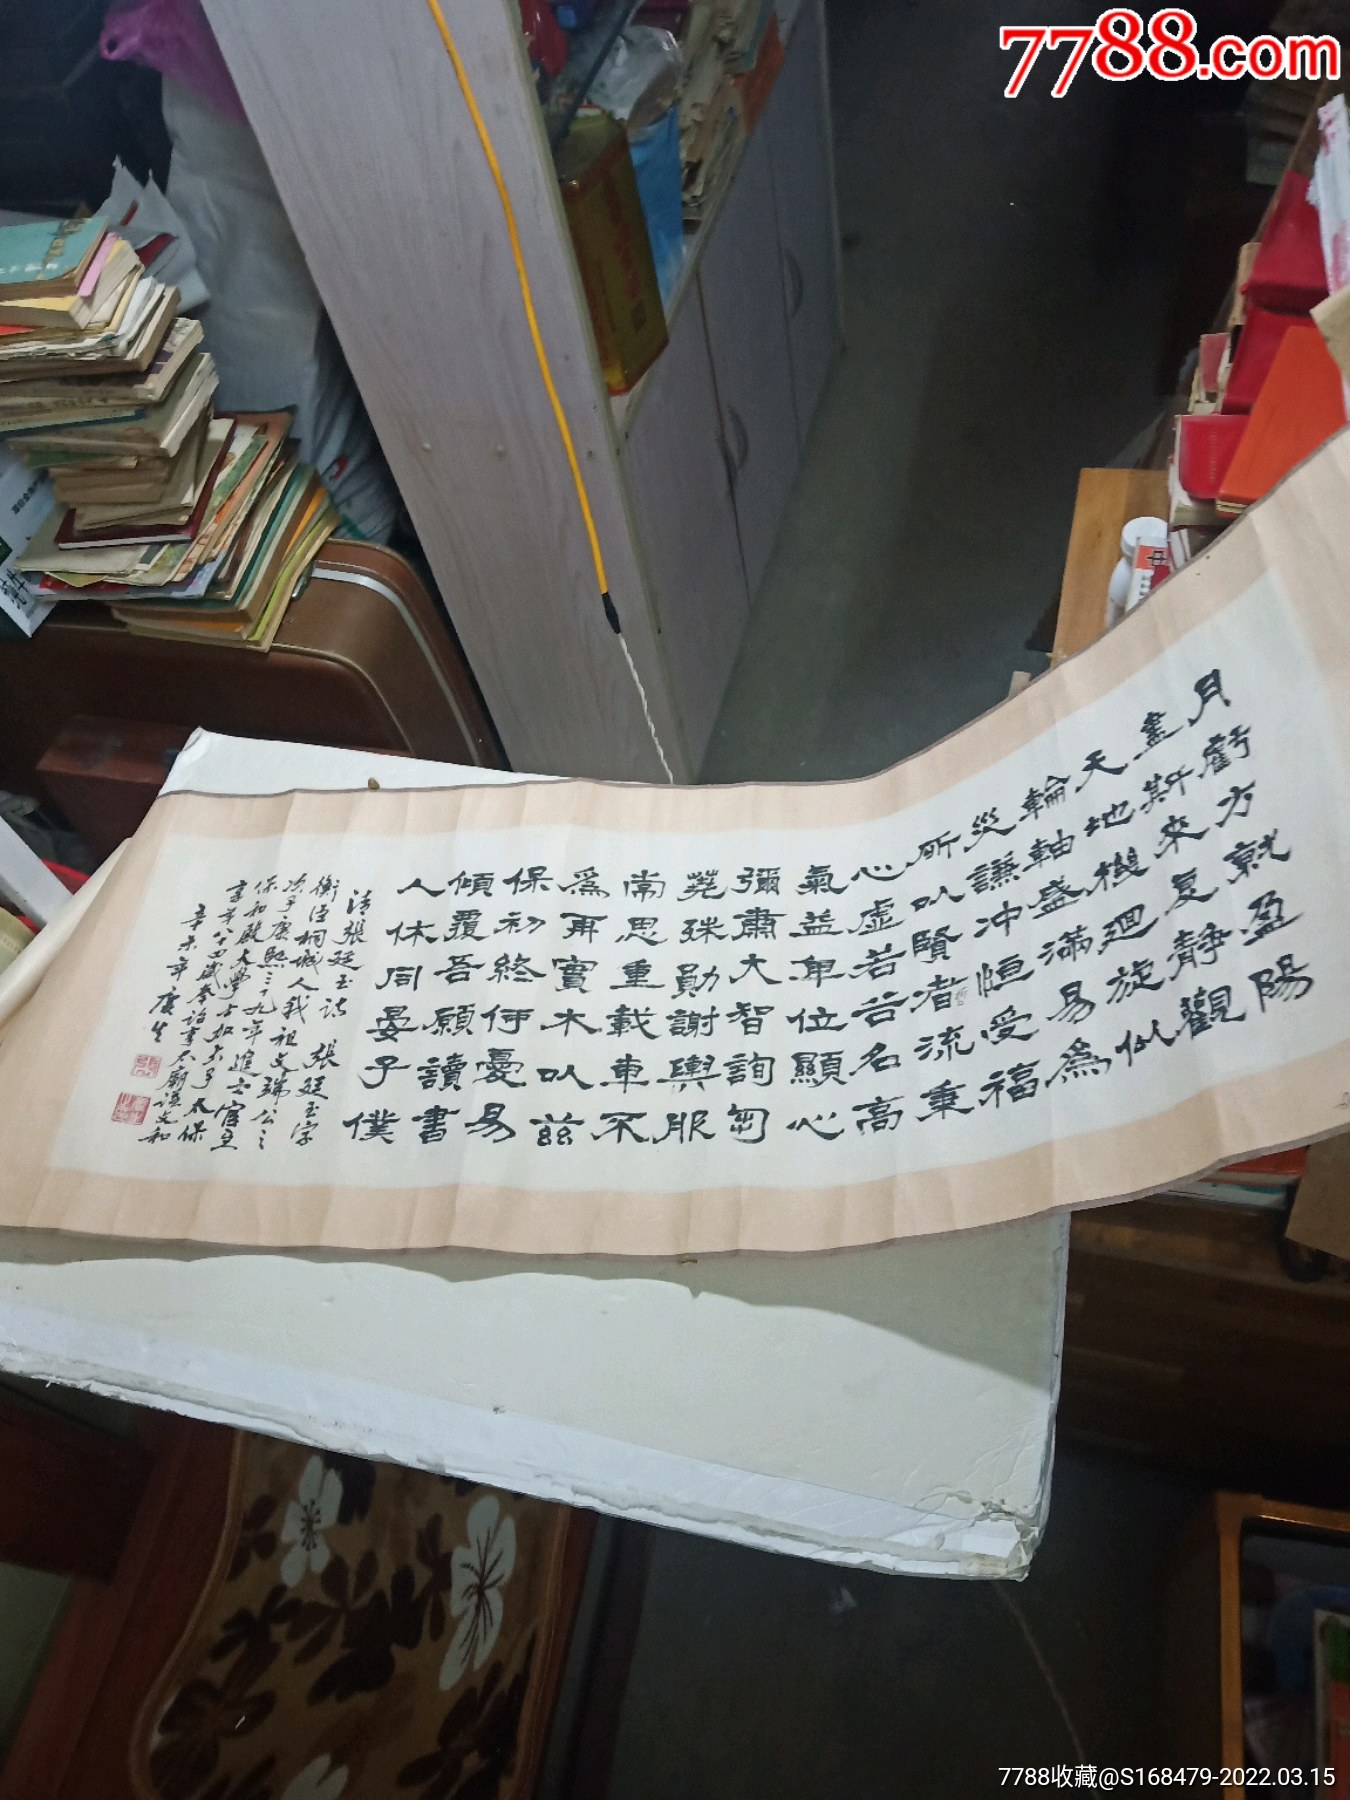 7788.com
月虧方就盈陽
盡斯來复靜觀
天地機廻旋似
輪軸盛滿易為
災謙冲恒受福
所以賢者流秉
心虛若谷名高
氣益卑位顯心
彌肅大智詢芻
蕘殊勛謝輿服
常思重載車不
爲再實木以茲
保初終伊憂易
傾覆吾願讀書
人休同晏子僕
清張廷玉詩 張廷玉字
衡臣桐城人我祖文端公之
次子康熙三十九年進士官至
保和殿大學士太子太保
享年八十四歲奉詔太廟諡文和
辛未年庚生
7788收藏@S168479-2022.03.15